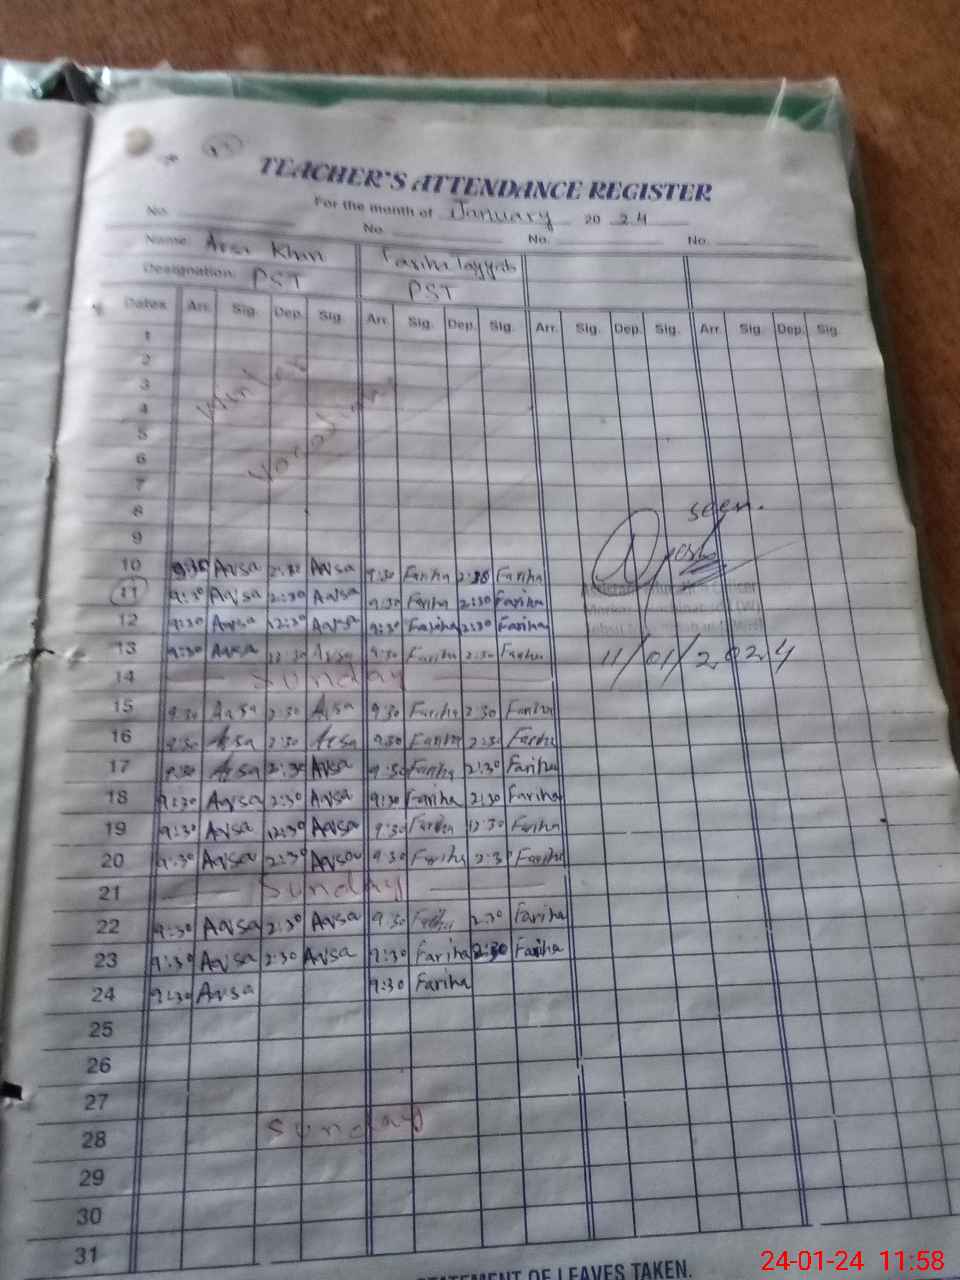 TEACHER'S ATTENDANCE REGISTER
For the month of January 2024
No. No. No. No.
Name: Khan Fariha Tayyab
Designation: PST PST
Dates Arr. Sig. Dep. Sig. Arr. Sig. Dep. Sig. Arr. Sig. Dep. Sig. Arr. Sig. Dep. Sig.
1
2
3
Winter
4
5
6
7
8
seen.
9
10 9:30 Aqsa 2:30 Aqsa 9:30 Fariha 2:30 Fariha
11 9:30 Aqsa 2:30 Aqsa 9:30 Fariha 2:30 Fariha
12 9:30 Aqsa 12:30 Aqsa 9:30 Fariha 2:30 Fariha
13 9:30 Aqsa 12:30 Aqsa 9:30 Fariha 2:30 Fariha
11/01/2024
14 Sunday
15 9:30 Aqsa 2:30 Aqsa 9:30 Fariha 2:30 Fariha
16 9:30 Aqsa 2:30 Aqsa 9:30 Fariha 2:30 Fariha
17 9:30 Aqsa 2:30 Aqsa 9:30 Fariha 2:30 Fariha
18 9:30 Aqsa 2:30 Aqsa 9:30 Fariha 2:30 Fariha
19 9:30 Aqsa 12:30 Aqsa 9:30 Fariha 12:30 Fariha
20 9:30 Aqsa 2:30 Aqsa 9:30 Fariha 2:30 Fariha
21 Sunday
22 9:30 Aqsa 2:30 Aqsa 9:30 Fariha 2:30 Fariha
23 9:30 Aqsa 2:30 Aqsa 9:30 Fariha 2:30 Fariha
24 9:30 Aqsa 9:30 Fariha
25
26
27
28 Sunday
29
30
31
STATEMENT OF LEAVES TAKEN.
24-01-24 11:58